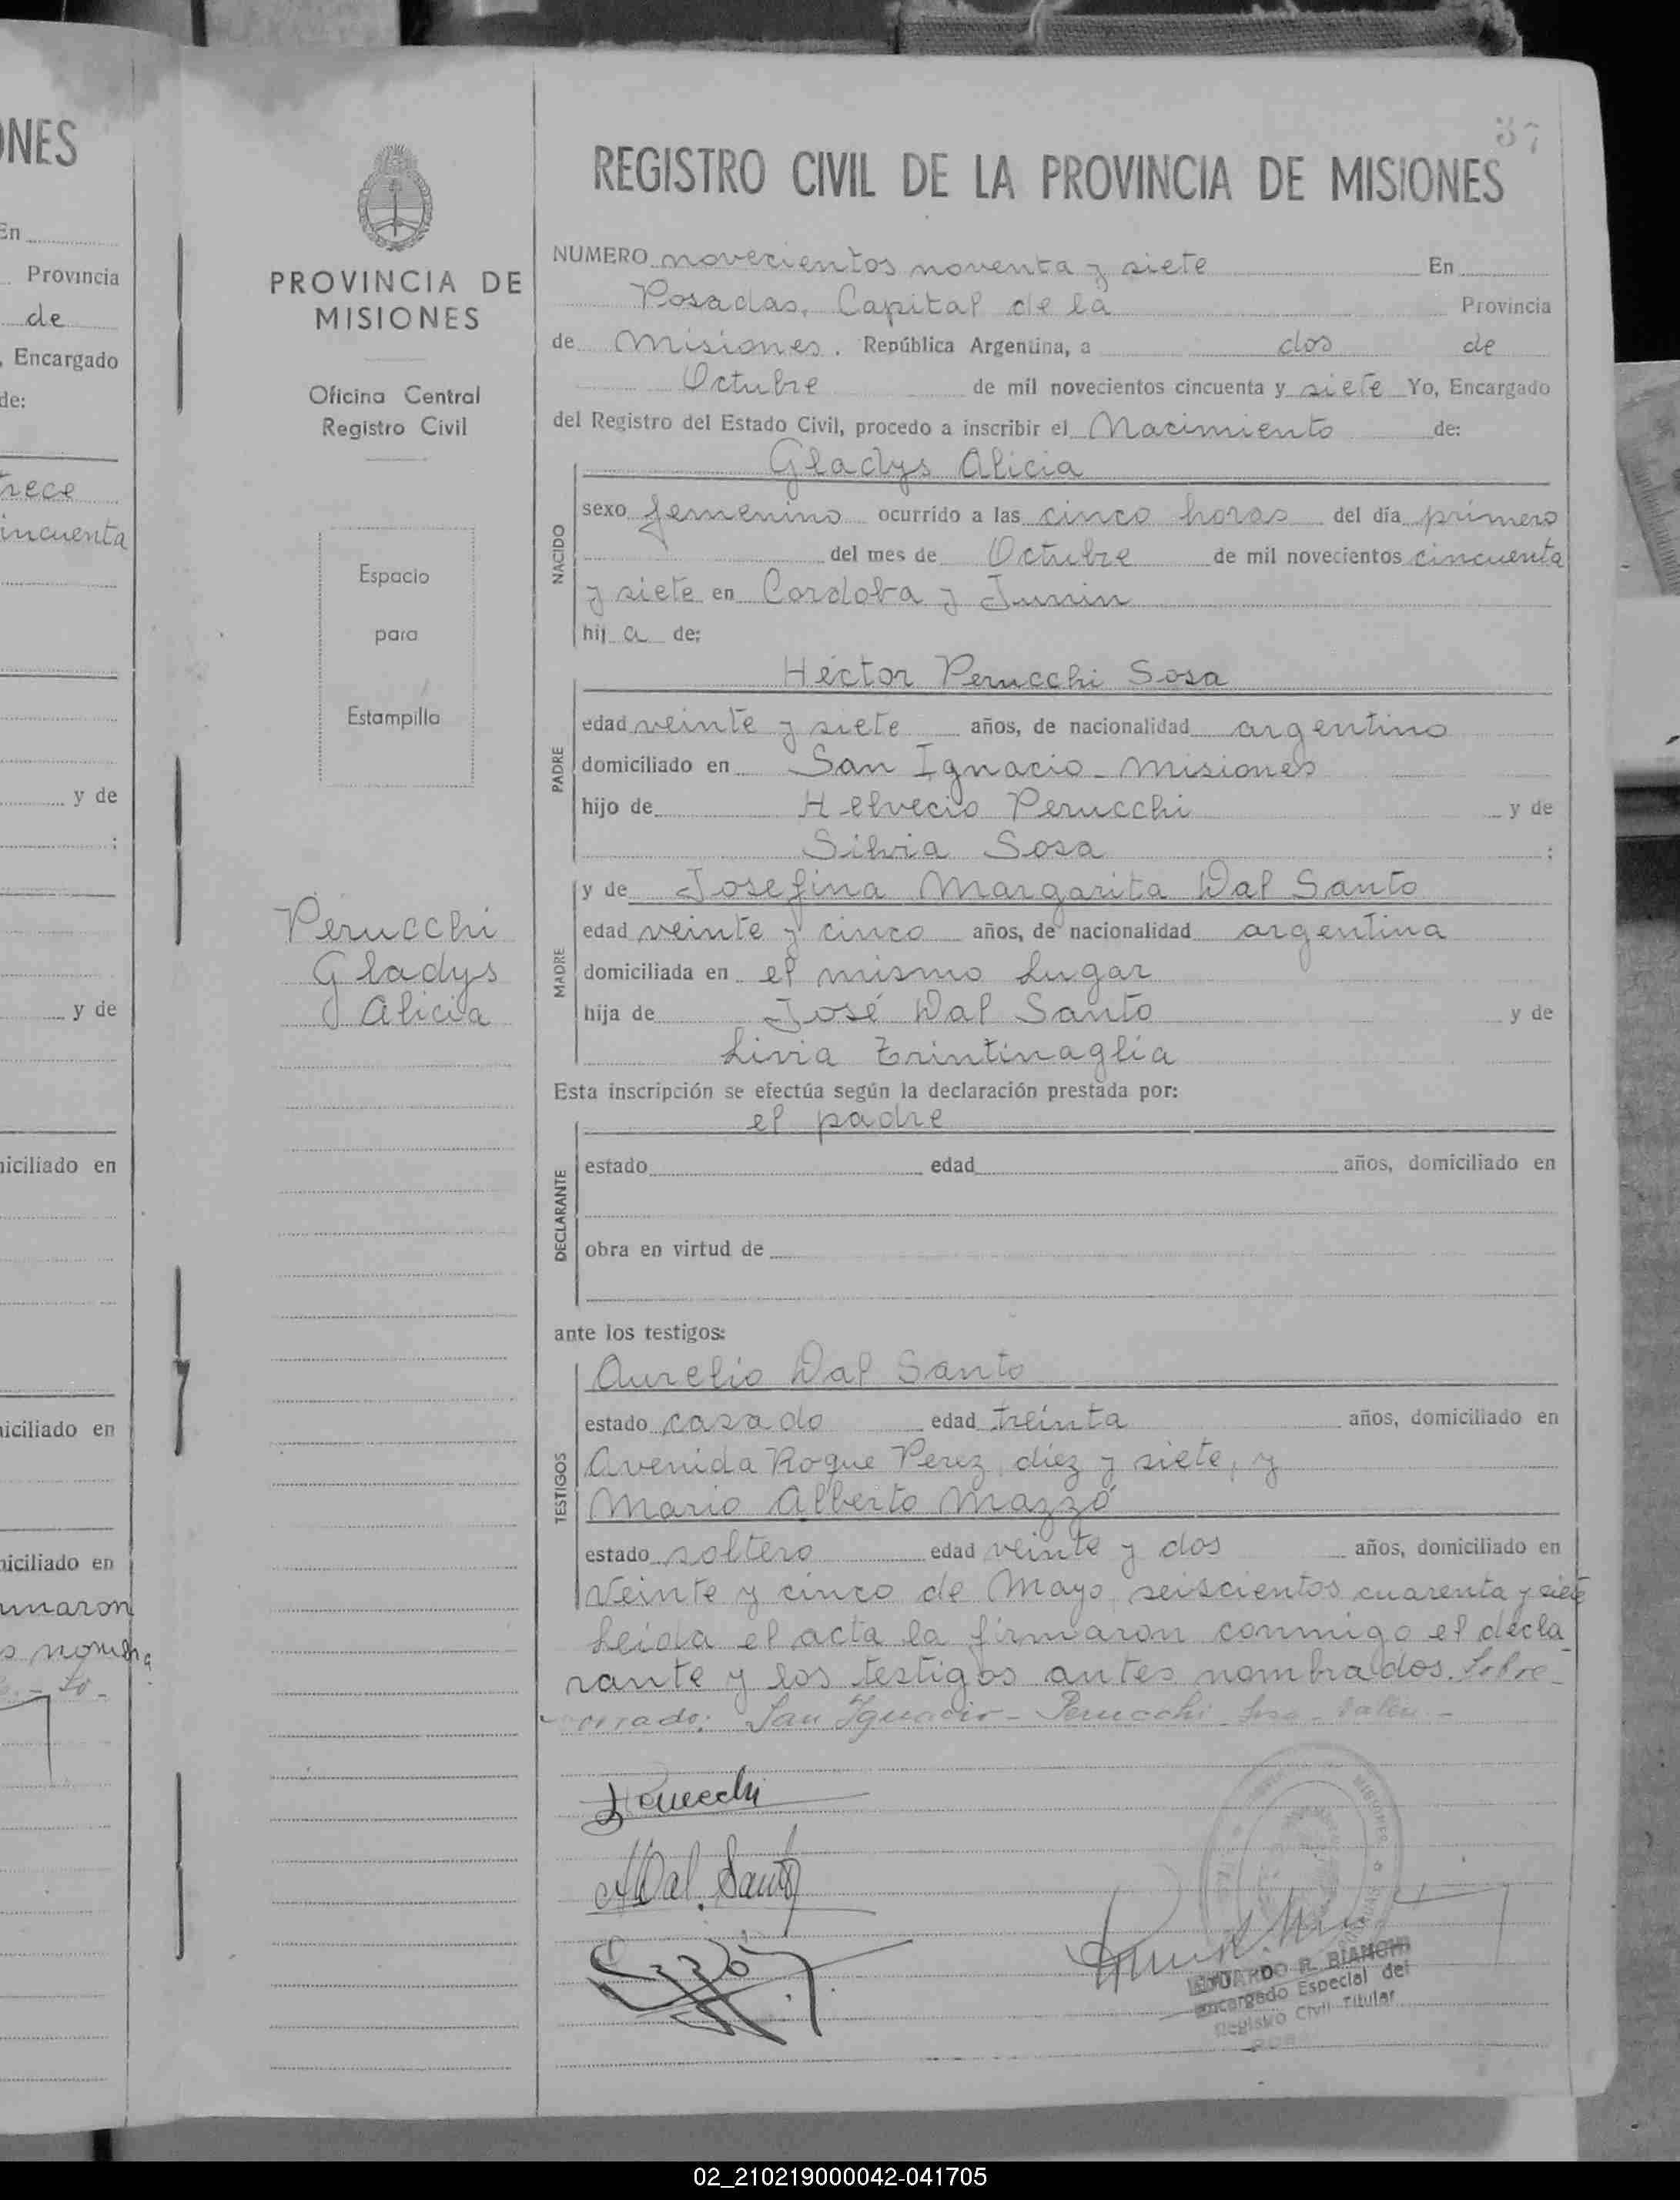 ONES
En
Provincia
de
, Encargado
de:
trece
incuenta
y de
;
y de
niciliado en
niciliado en
niciliado en
rmaron
PROVINCIA DE
MISIONES
Oficina Central
Registro Civil
Espacio
para
Estampilla
Perucchi
Gladys
Alicia
37
REGISTRO CIVIL DE LA PROVINCIA DE MISIONES
NUMERO novecientos noventa y siete En
Posadas, Capital de la Provincia
de Misiones. República Argentina, a dos de
Octubre de mil novecientos cincuenta y siete Yo, Encargado
del Registro del Estado Civil, procedo a inscribir el Nacimiento de:
Gladys Alicia
NACIDO
sexo femenino ocurrido a las cinco horas del día primero
del mes de Octubre de mil novecientos cincuenta
y siete en Cordoba y Junin
hij a de:
Héctor Perucchi Sosa
PADRE
edad veinte y siete años, de nacionalidad argentino
domiciliado en San Ignacio - Misiones
hijo de Helvecio Perucchi y de
Silvia Sosa ;
y de Josefina Margarita Dal Santo
MADRE
edad veinte y cinco años, de nacionalidad argentina
domiciliada en el mismo lugar
hija de José Dal Santo y de
Livia Trintinaglia
Esta inscripción se efectúa según la declaración prestada por:
el padre
DECLARANTE
estado edad años, domiciliado en
obra en virtud de
ante los testigos:
Aurelio Dal Santo
TESTIGOS
estado casado edad treinta años, domiciliado en
Avenida Roque Perez, diez y siete, y
Mario Alberto Mazzó
estado soltero edad veinte y dos años, domiciliado en
Veinte y cinco de Mayo, seiscientos cuarenta y siete
Leida el acta la firmaron conmigo el decla
rante y los testigos antes nombrados. Sobre-
orrado: San Ignacio - Perucchi Sosa - Valen. -
Perucchi
ADal Santo
MISIONES
POSADAS
EDUARDO R. BIANCHI
Encargado Especial del
Registro Civil Titular
02_210219000042-041705